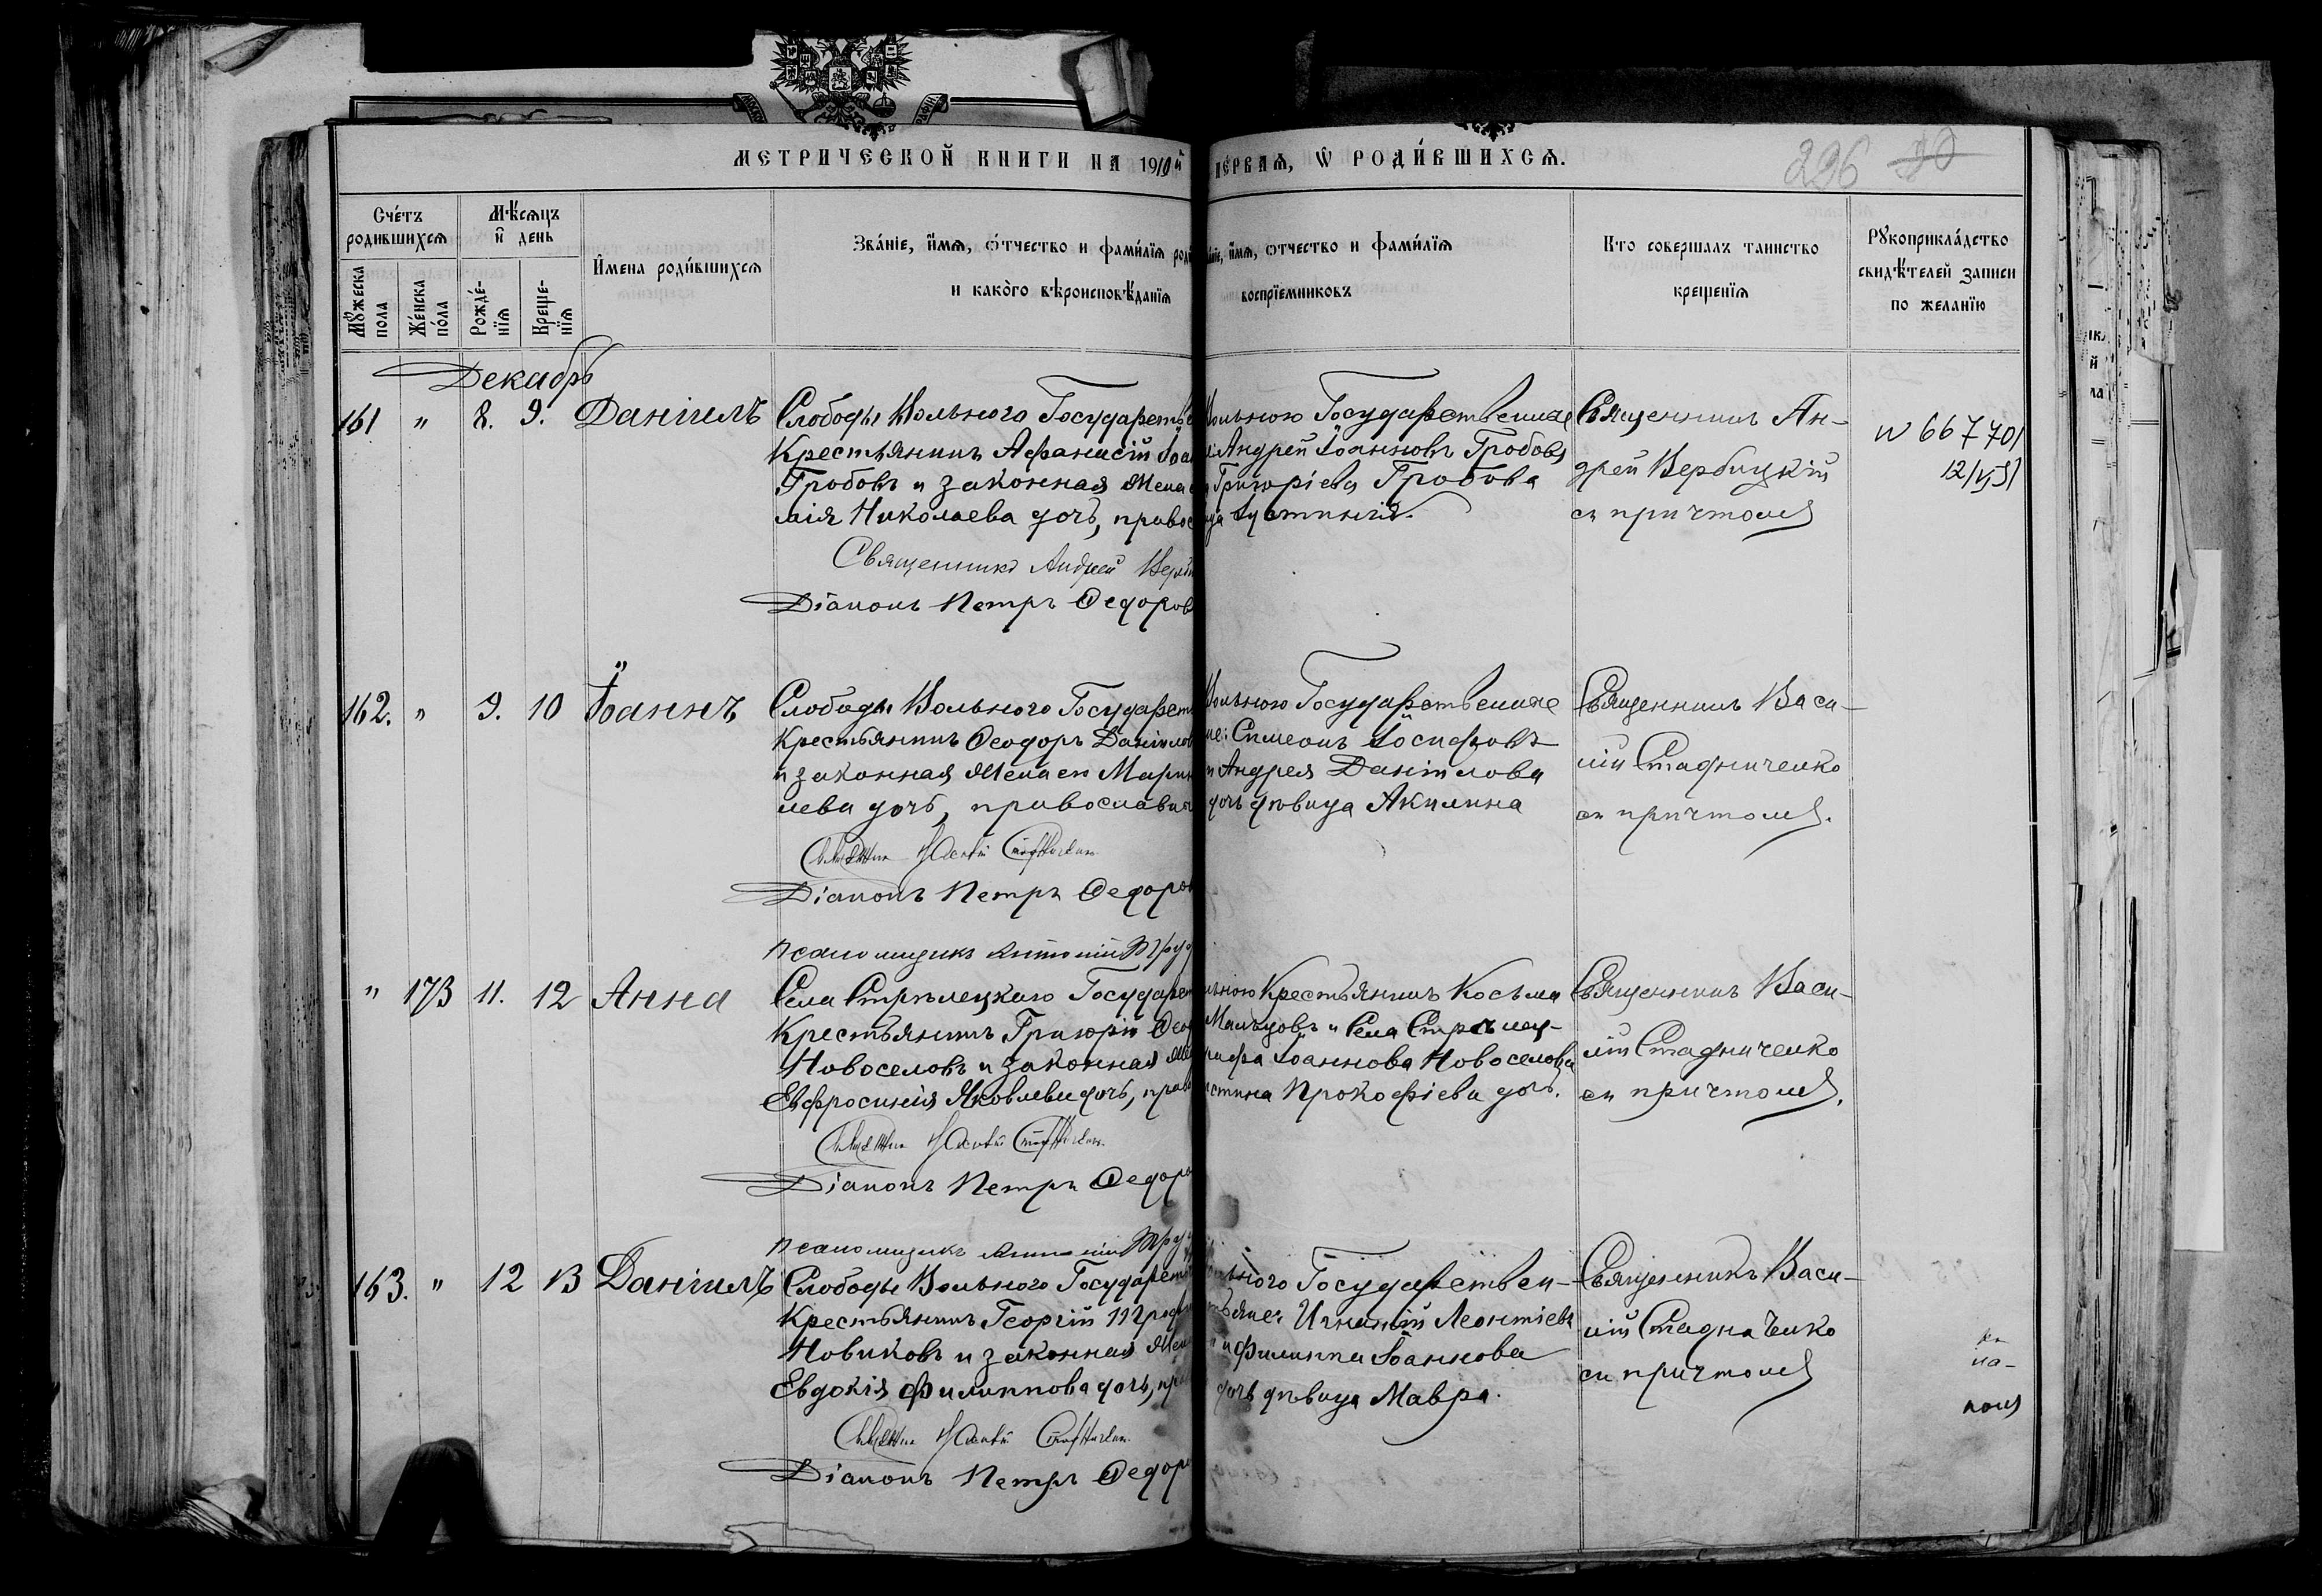 МЕТРИЧЕСКОЙ КНИГИ НА 1910й
ПЕРВАЯ, Ѡ РОДИ́ВШИХСЯ.
296 30
Сче́тъ родившихся
Мѹжеска пола
Же́нска по́ла
Мѣсяцъ и день
Рожде́нїя
Креще́нїя
И҆мена роди́вшихся
Зва́нїе, и҆́мя, ѻ҆́тчество и фами́лїя роди
и како́го вѣроисповѣ́данїя
нїе, и҆́мя, ѻтчество и фами́лїя
воспрїемниковъ
Кто совершалъ таинство
крещенїя
Рѹкоприкла́дство
свидѣтелей записи
по желанїю
Декабрь
161 " 8. 9. Даніилъ
Слободы Вольного Государств
Крестьянинъ Аѳанасій Іоан
Гробовъ и законная жена е
мія Николаева дочь, правос
Священникъ Андрей Верб
Діаконъ Петръ Ѳедоров
Вольного Государственные
Андрей Іоанновъ Гробовъ
Григоріева Гробова
Іустинія.
Священникъ Ан-
дрей Вербицкій
съ причтомъ
N 667701
162. " 9. 10 Іоаннъ
Слободы Вольного Государст
Крестьянинъ Ѳеодоръ Даніилов
и законная жена его Мари
лева дочь, православн
Діаконъ Петръ Ѳедоров
Вольного Государственные
не: Симеонъ Іосифовъ
и Андрея Даніилова
дочь дѣвица Акилина
Священникъ Васи-
лій Стадниченко
съ причтомъ.
псаломщикъ Антоній Тру
" 173 11. 12 Анна
Села Стрѣлецкаго Государст
Крестьянинъ Григорій Ѳео
Новоселовъ и законная же
Евфросинія Яковлева дочь, прав
Діаконъ Петръ Ѳедоро
льного Крестьянинъ Косьма
Мальцовъ и Села Стрѣлец-
Іоаннова Новоселова
стина Прокофіева дочь.
Священникъ Васи-
лій Стадниченко
съ причтомъ.
псаломщикъ Антоній Тру
163. " 12 13 Даніилъ
Слободы Вольного Государств
Крестьянинъ Георгій
Новиковъ и законная жен
Евдокія Филиппова дочь, пра
Діаконъ Петръ Ѳедоро
льного Государствен-
тьяне: Игнатій Леонтіевъ
и Филиппа Іоаннова
дочь дѣвица Мавра.
Священникъ Васи-
лій Стадниченко
съ причтомъ